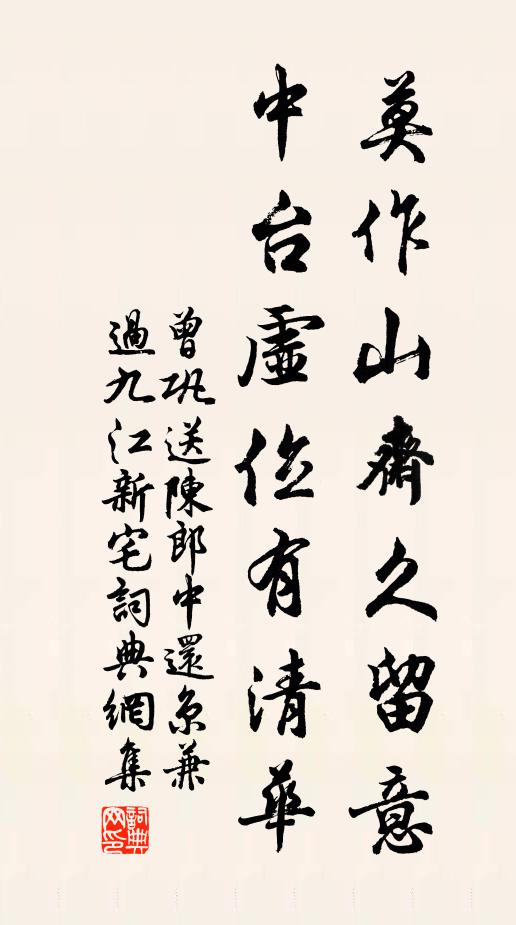 莫作山齋久留意
中台虛位有清華
曾鞏送陳郎中還京兼
過九江新宅詞典網集
詞典
网印